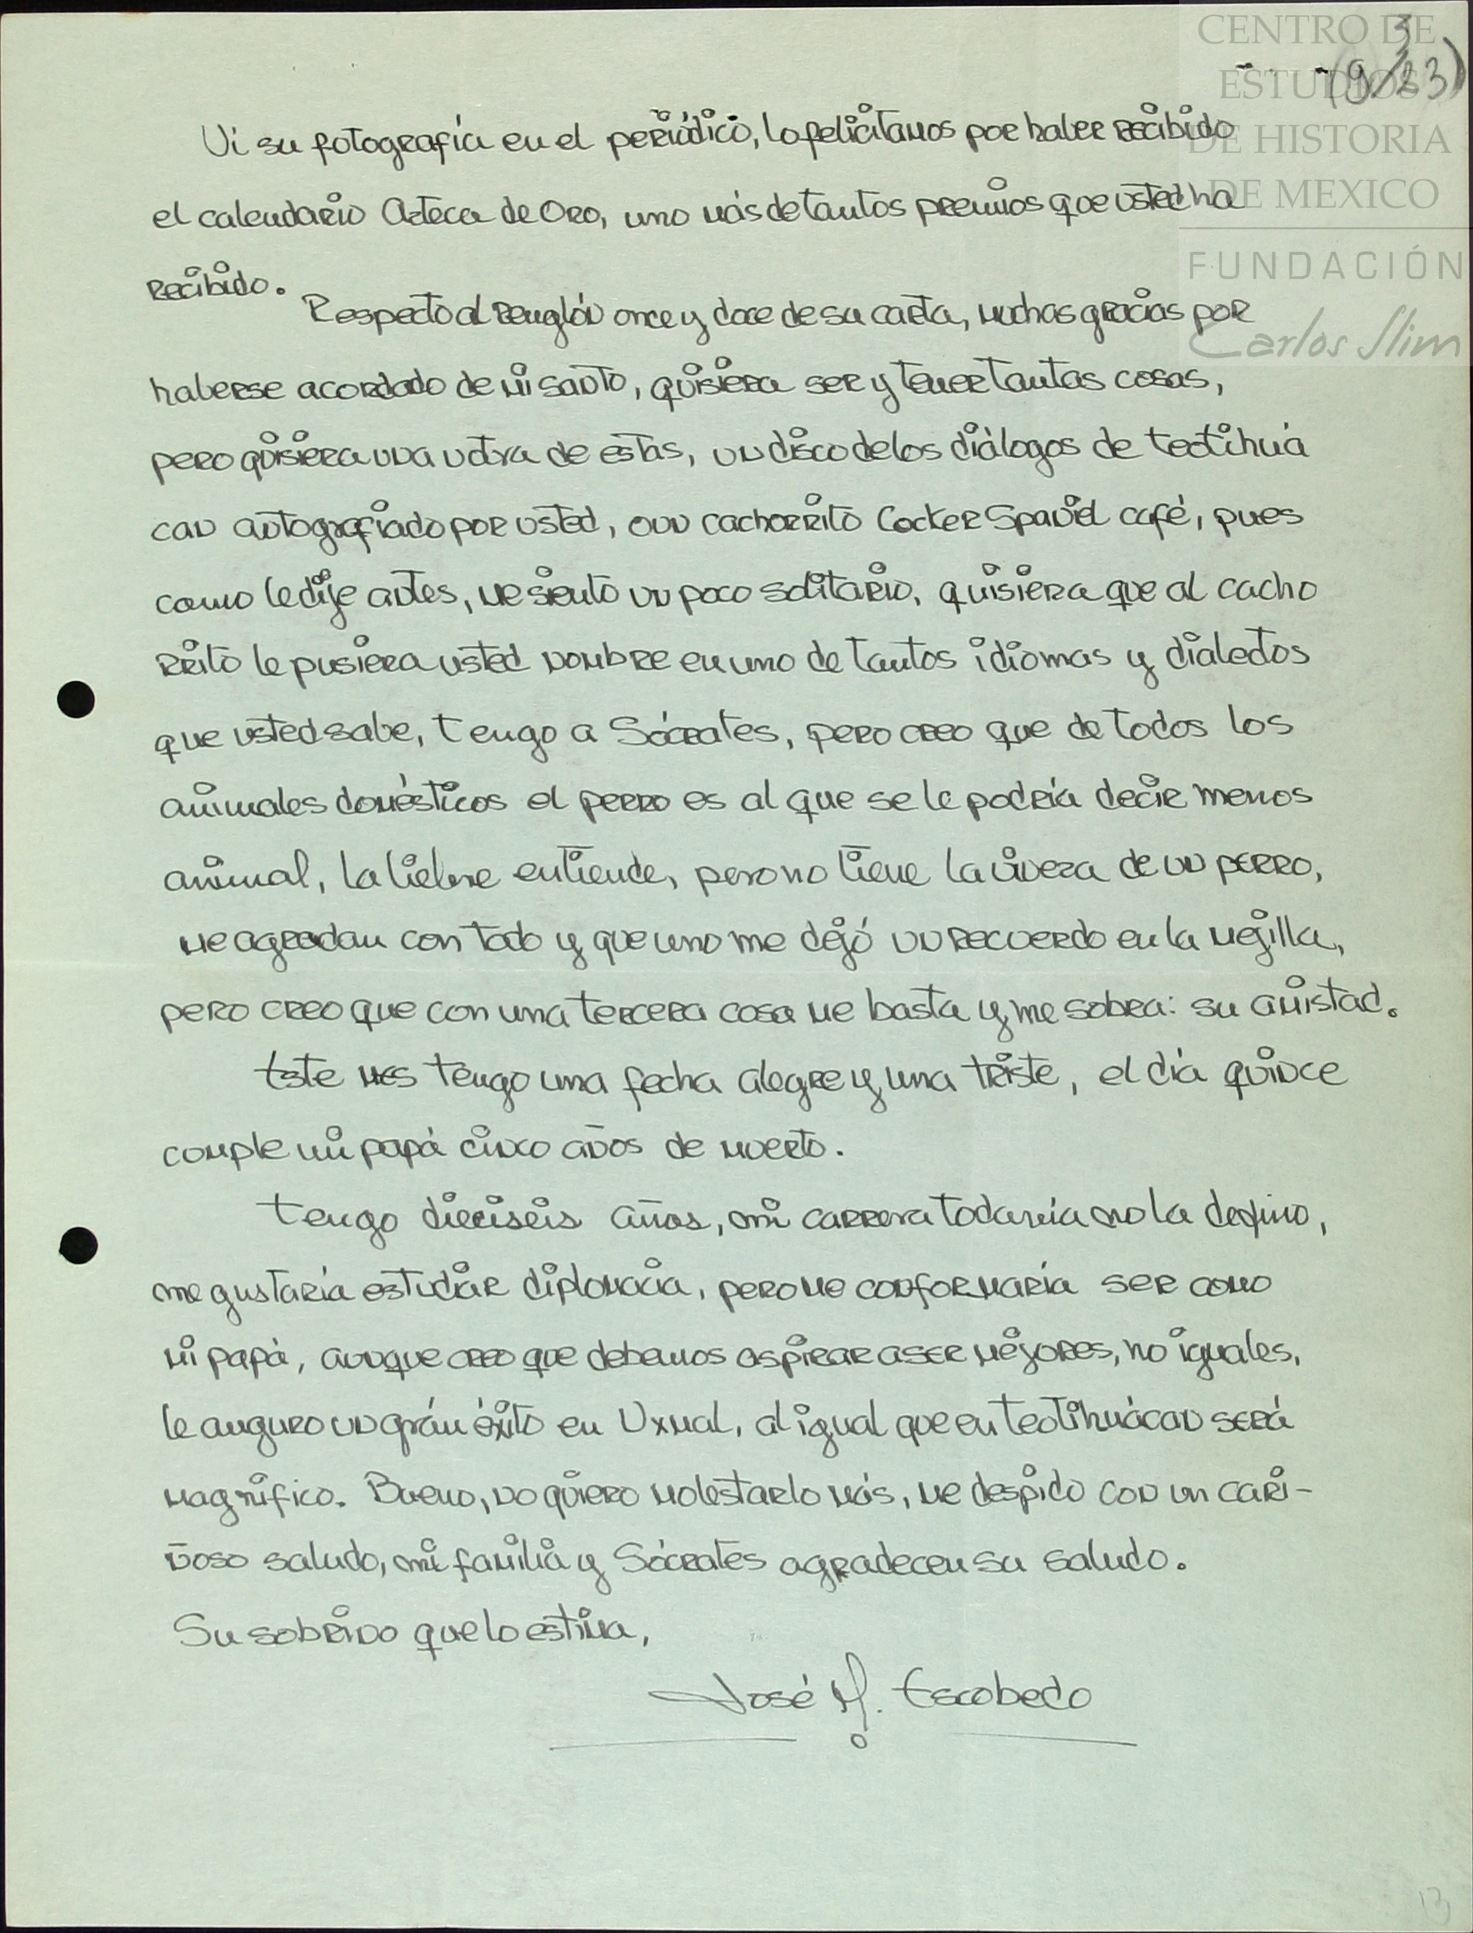 CENTRO DE
ESTUDIOS
DE HISTORIA
DE MEXICO
FUNDACIÓN
Carlos Slim
3
(9/23)
Vi su fotografía en el periódico, lo felicitamos por haber recibido
el calendario Azteca de Oro, uno más de tantos premios que usted ha
recibido.
Respecto al renglón once y doce de su carta, muchas gracias por
haberse acordado de mi santo, quisiera ser y tener tantas cosas,
pero quisiera una u otra de estas, un disco de los diálogos de teotihuá
can autografiado por usted, o un cachorrito Cocker Spaniel café, pues
como le dije antes, me siento un poco solitario, quisiera que al cacho
rrito le pusiera usted nombre en uno de tantos idiomas y dialectos
que usted sabe, tengo a Sócrates, pero creo que de todos los
animales domésticos el perro es al que se le podría decir menos
animal, la liebre entiende, pero no tiene la viveza de un perro,
me agradan con todo y que uno me dejó un recuerdo en la mejilla,
pero creo que con una tercera cosa me basta y me sobra: su amistad.
Este mes tengo una fecha alegre y una triste, el día quince
cumple mi papá cinco años de muerto.
tengo dieciseis años, mi carrera todavía no la defino,
me gustaría estudiar diplomacia, pero me conformaría ser como
mi papá, aunque creo que debemos aspirar a ser mejores, no iguales,
le auguro un grán éxito en Uxmal, al igual que en teotihuácan será
magnífico. Bueno, no quiero molestarlo más, me despido con un cari-
ñoso saludo, mi familia y Sócrates agradecen su saludo.
Su sobrino que lo estima,
José M. Escobedo
13